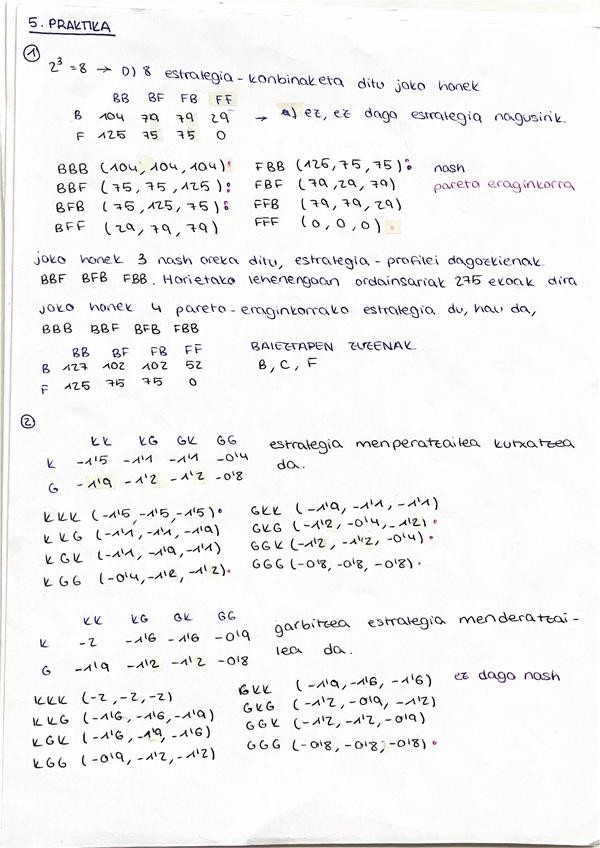 5. PRAKTIKA
①
2³ = 8 → D) 8 estrategia-konbinaketa ditu joko honek
BB BF FB FF
B 104 79 79 29 → a) ez, ez dago estrategia nagusirik.
F 125 75 75 0
BBB (104, 104, 104): FBB (125, 75, 75): nash
BBF (75, 75, 125): FBF (79, 29, 79) pareto eraginkorra
BFB (75, 125, 75): FFB (79, 79, 29)
BFF (29, 79, 79) FFF (0, 0, 0).
joko honek 3 nash oreka ditu, estrategia-profilei dagozkienak
BBF BFB FBB. Horietako lehenengoan ordainsariak 275 ekoak dira
joko honek 4 pareto-eraginkorrako estrategia du, hau da,
BBB BBF BFB FBB
BB BF FB FF BAIEZTAPEN ZUZENAK
B 127 102 102 52 B, C, F
F 125 75 75 0
②
KK KG GK GG estrategia menperatzailea kutxatzea
K -1'5 -1'1 -1'1 -0'4 da.
G -1'9 -1'2 -1'2 -0'8
KKK (-1'5, -1'5, -1'5). GKK (-1'9, -1'1, -1'1)
KKG (-1'1, -1'1, -1'9) GKG (-1'2, -0'4, -1'2).
KGK (-1'1, -1'9, -1'1) GGK (-1'2, -1'2, -0'4).
KGG (-0'4, -1'2, -1'2). GGG (-0'8, -0'8, -0'8).
KK KG GK GG garbitzea estrategia menderatzai-
K -2 -1'6 -1'6 -0'9 lea da.
G -1'9 -1'2 -1'2 -0'8
KKK (-2, -2, -2) GKK (-1'9, -1'6, -1'6) ez dago nash
KKG (-1'6, -1'6, -1'9) GKG (-1'2, -0'9, -1'2)
KGK (-1'6, -1'9, -1'6) GGK (-1'2, -1'2, -0'9)
KGG (-0'9, -1'2, -1'2) GGG (-0'8, -0'8, -0'8).